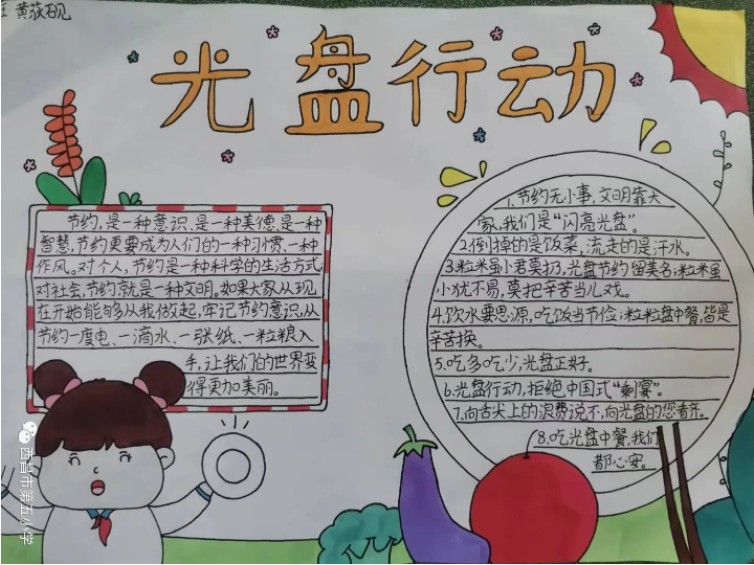 黄荻砚
光盘行动
节约,是一种意识、是一种美德,是一种
智慧,节约更要成为人们的一种习惯,一种
作风。对个人,节约是一种科学的生活方式,
对社会,节约就是一种文明。如果大家从现
在开始能够从我做起,牢记节约意识,从
节约一度电、一滴水、一张纸、一粒粮入
手,让我们的世界变
得更加美丽。
1.节约无小事,文明靠大
家,我们是“闪亮光盘”。
2.倒掉的是饭菜,流走的是汗水。
3.粒米虽小君莫扔,光盘节约留美名;粒米虽
小犹不易,莫把辛苦当儿戏。
4.饮水要思源,吃饭当节俭;粒粒盘中餐,皆是
辛苦换。
5.吃多吃少,光盘正好。
6.光盘行动,拒绝中国式“剩宴”。
7.向舌尖上的浪费说不,向光盘的您看齐。
8.吃光盘中餐,我们
都心安。
西昌市第五小学